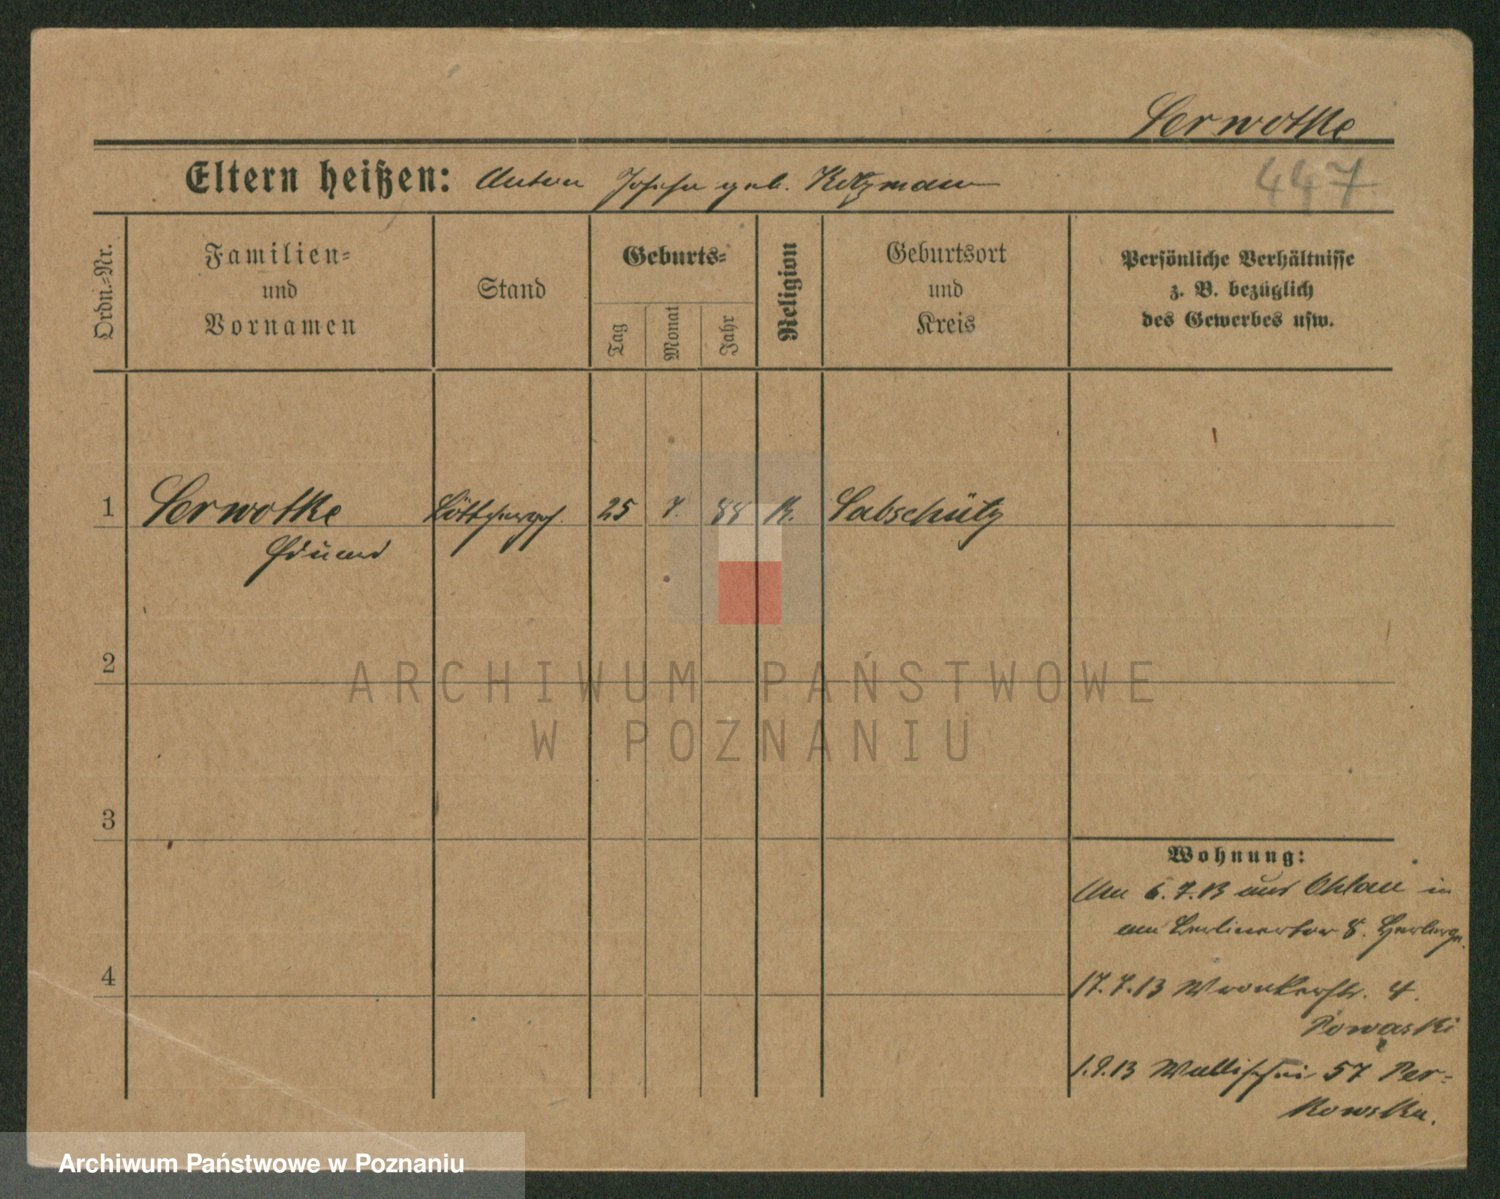 Serwotke
Eltern heißen: Anton Josefa geb. Kotzman
447
Ordn.-Nr.
Familien-
und
Vornamen
Stand
Geburts-
Tag
Monat
Jahr
Religion
Geburtsort
und
Kreis
Persönliche Verhältnisse
z. B. bezüglich
des Gewerbes usw.
1 Serwotke 25 7. 88 K.
Eduard
2
ARCHIWUM PAŃSTWOWE
W POZNANIU
3
Wohnung:
Am 6.7.13 aus Ohlau in
am Berlinertor 8. Herberge.
4
17.7.13 Wronkerstr. 4.
1.9.13 Wallischei 57 Per-
kowska.
Archiwum Państwowe w Poznaniu